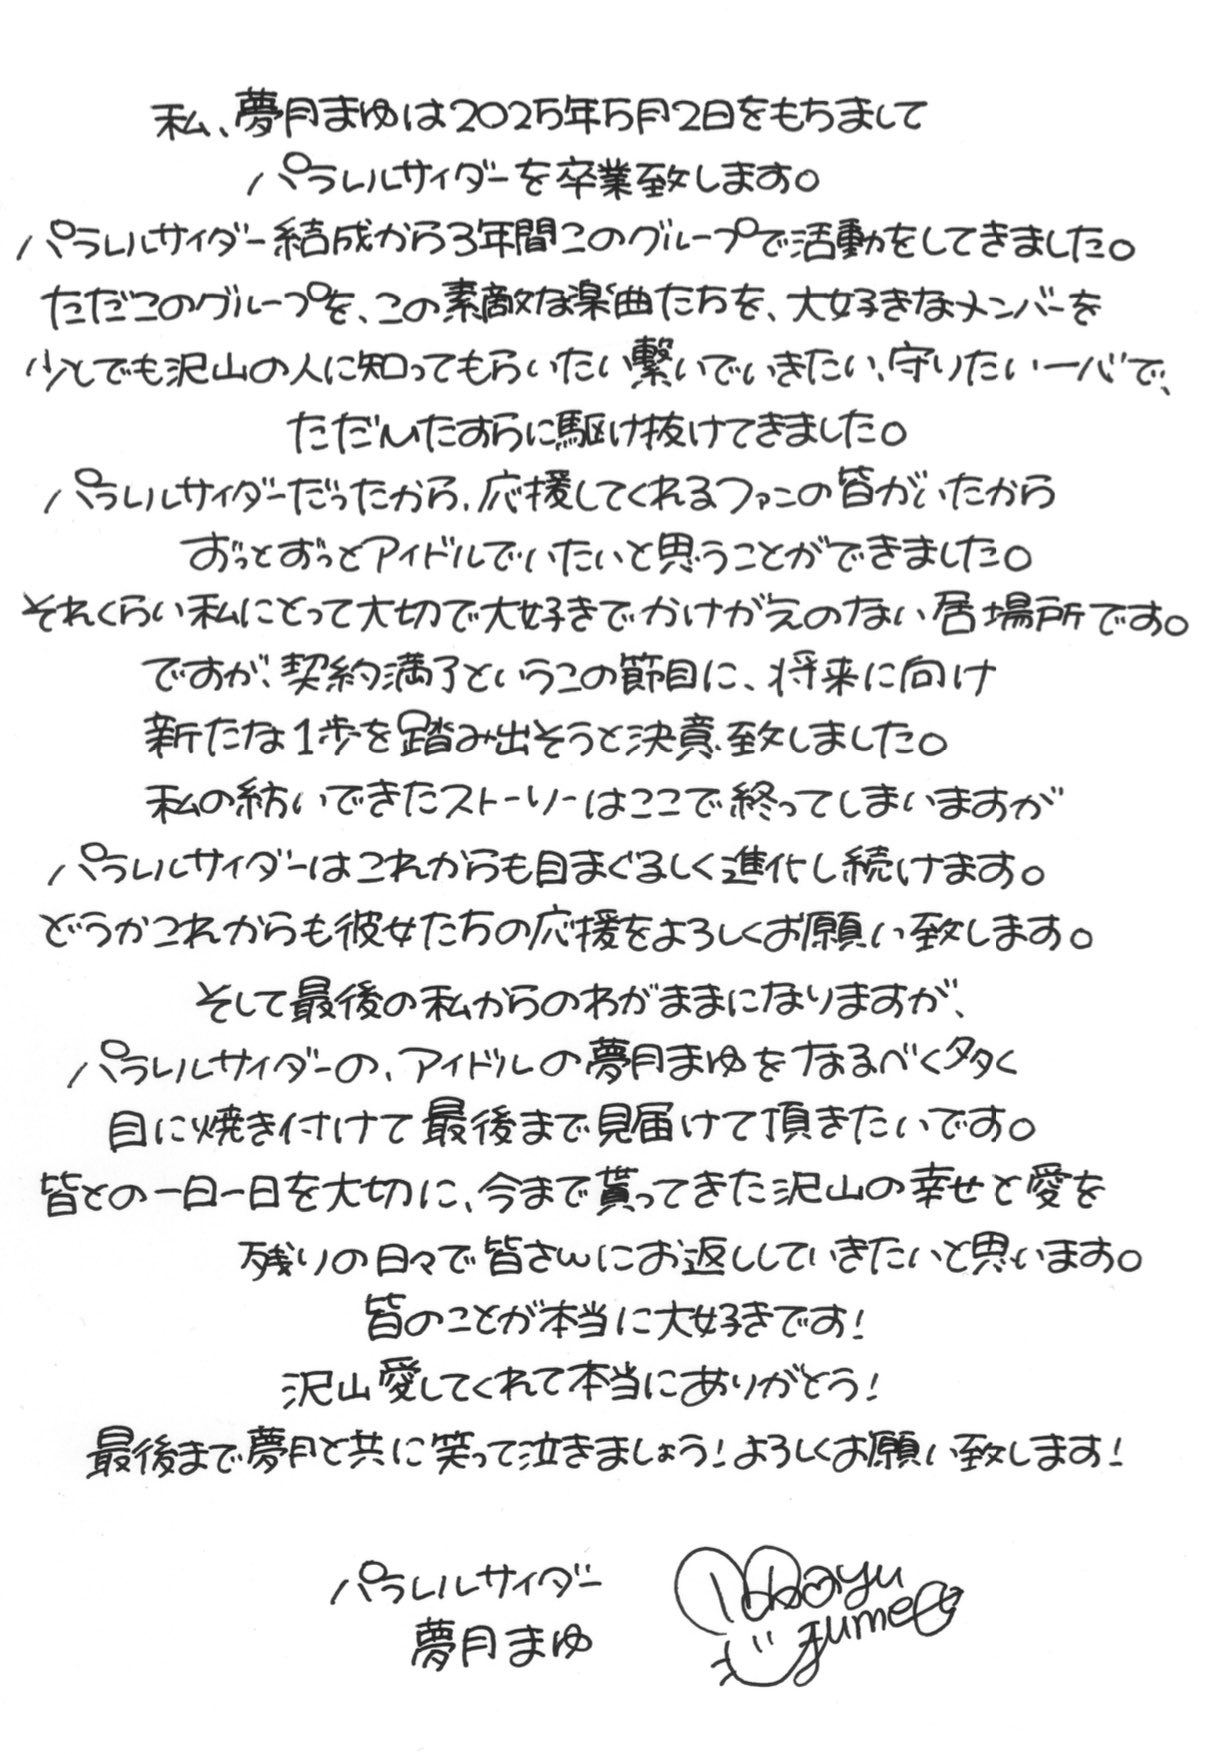 私、夢月まゆは2025年5月2日をもちまして
パラレルサイダーを卒業致します。
パラレルサイダー結成から3年間このグループで活動をしてきました。
ただこのグループを、この素敵な楽曲たちを、大好きなメンバーを
少しでも沢山の人に知ってもらいたい繋いでいきたい、守りたい一心で、
ただひたすらに駆け抜けてきました。
パラレルサイダーだったから、応援してくれるファンの皆がいたから
ずっとずっとアイドルでいたいと思うことができました。
それくらい私にとって大切で大好きでかけがえのない居場所です。
ですが、契約満了というこの節目に、将来に向け
新たな1歩を踏み出そうと決意致しました。
私の紡いできたストーリーはここで終ってしまいますが
パラレルサイダーはこれからも目まぐるしく進化し続けます。
どうかこれからも彼女たちの応援をよろしくお願い致します。
そして最後の私からのわがままになりますが、
パラレルサイダーの、アイドルの夢月まゆをなるべく多く
目に焼き付けて最後まで見届けて頂きたいです。
皆との一日一日を大切に、今まで貰ってきた沢山の幸せと愛を
残りの日々で皆さんにお返ししていきたいと思います。
皆のことが本当に大好きです!
沢山愛してくれて本当にありがとう!
最後まで夢月と共に笑って泣きましょう!よろしくお願い致します!
パラレルサイダー
夢月まゆ
Mayu
yume